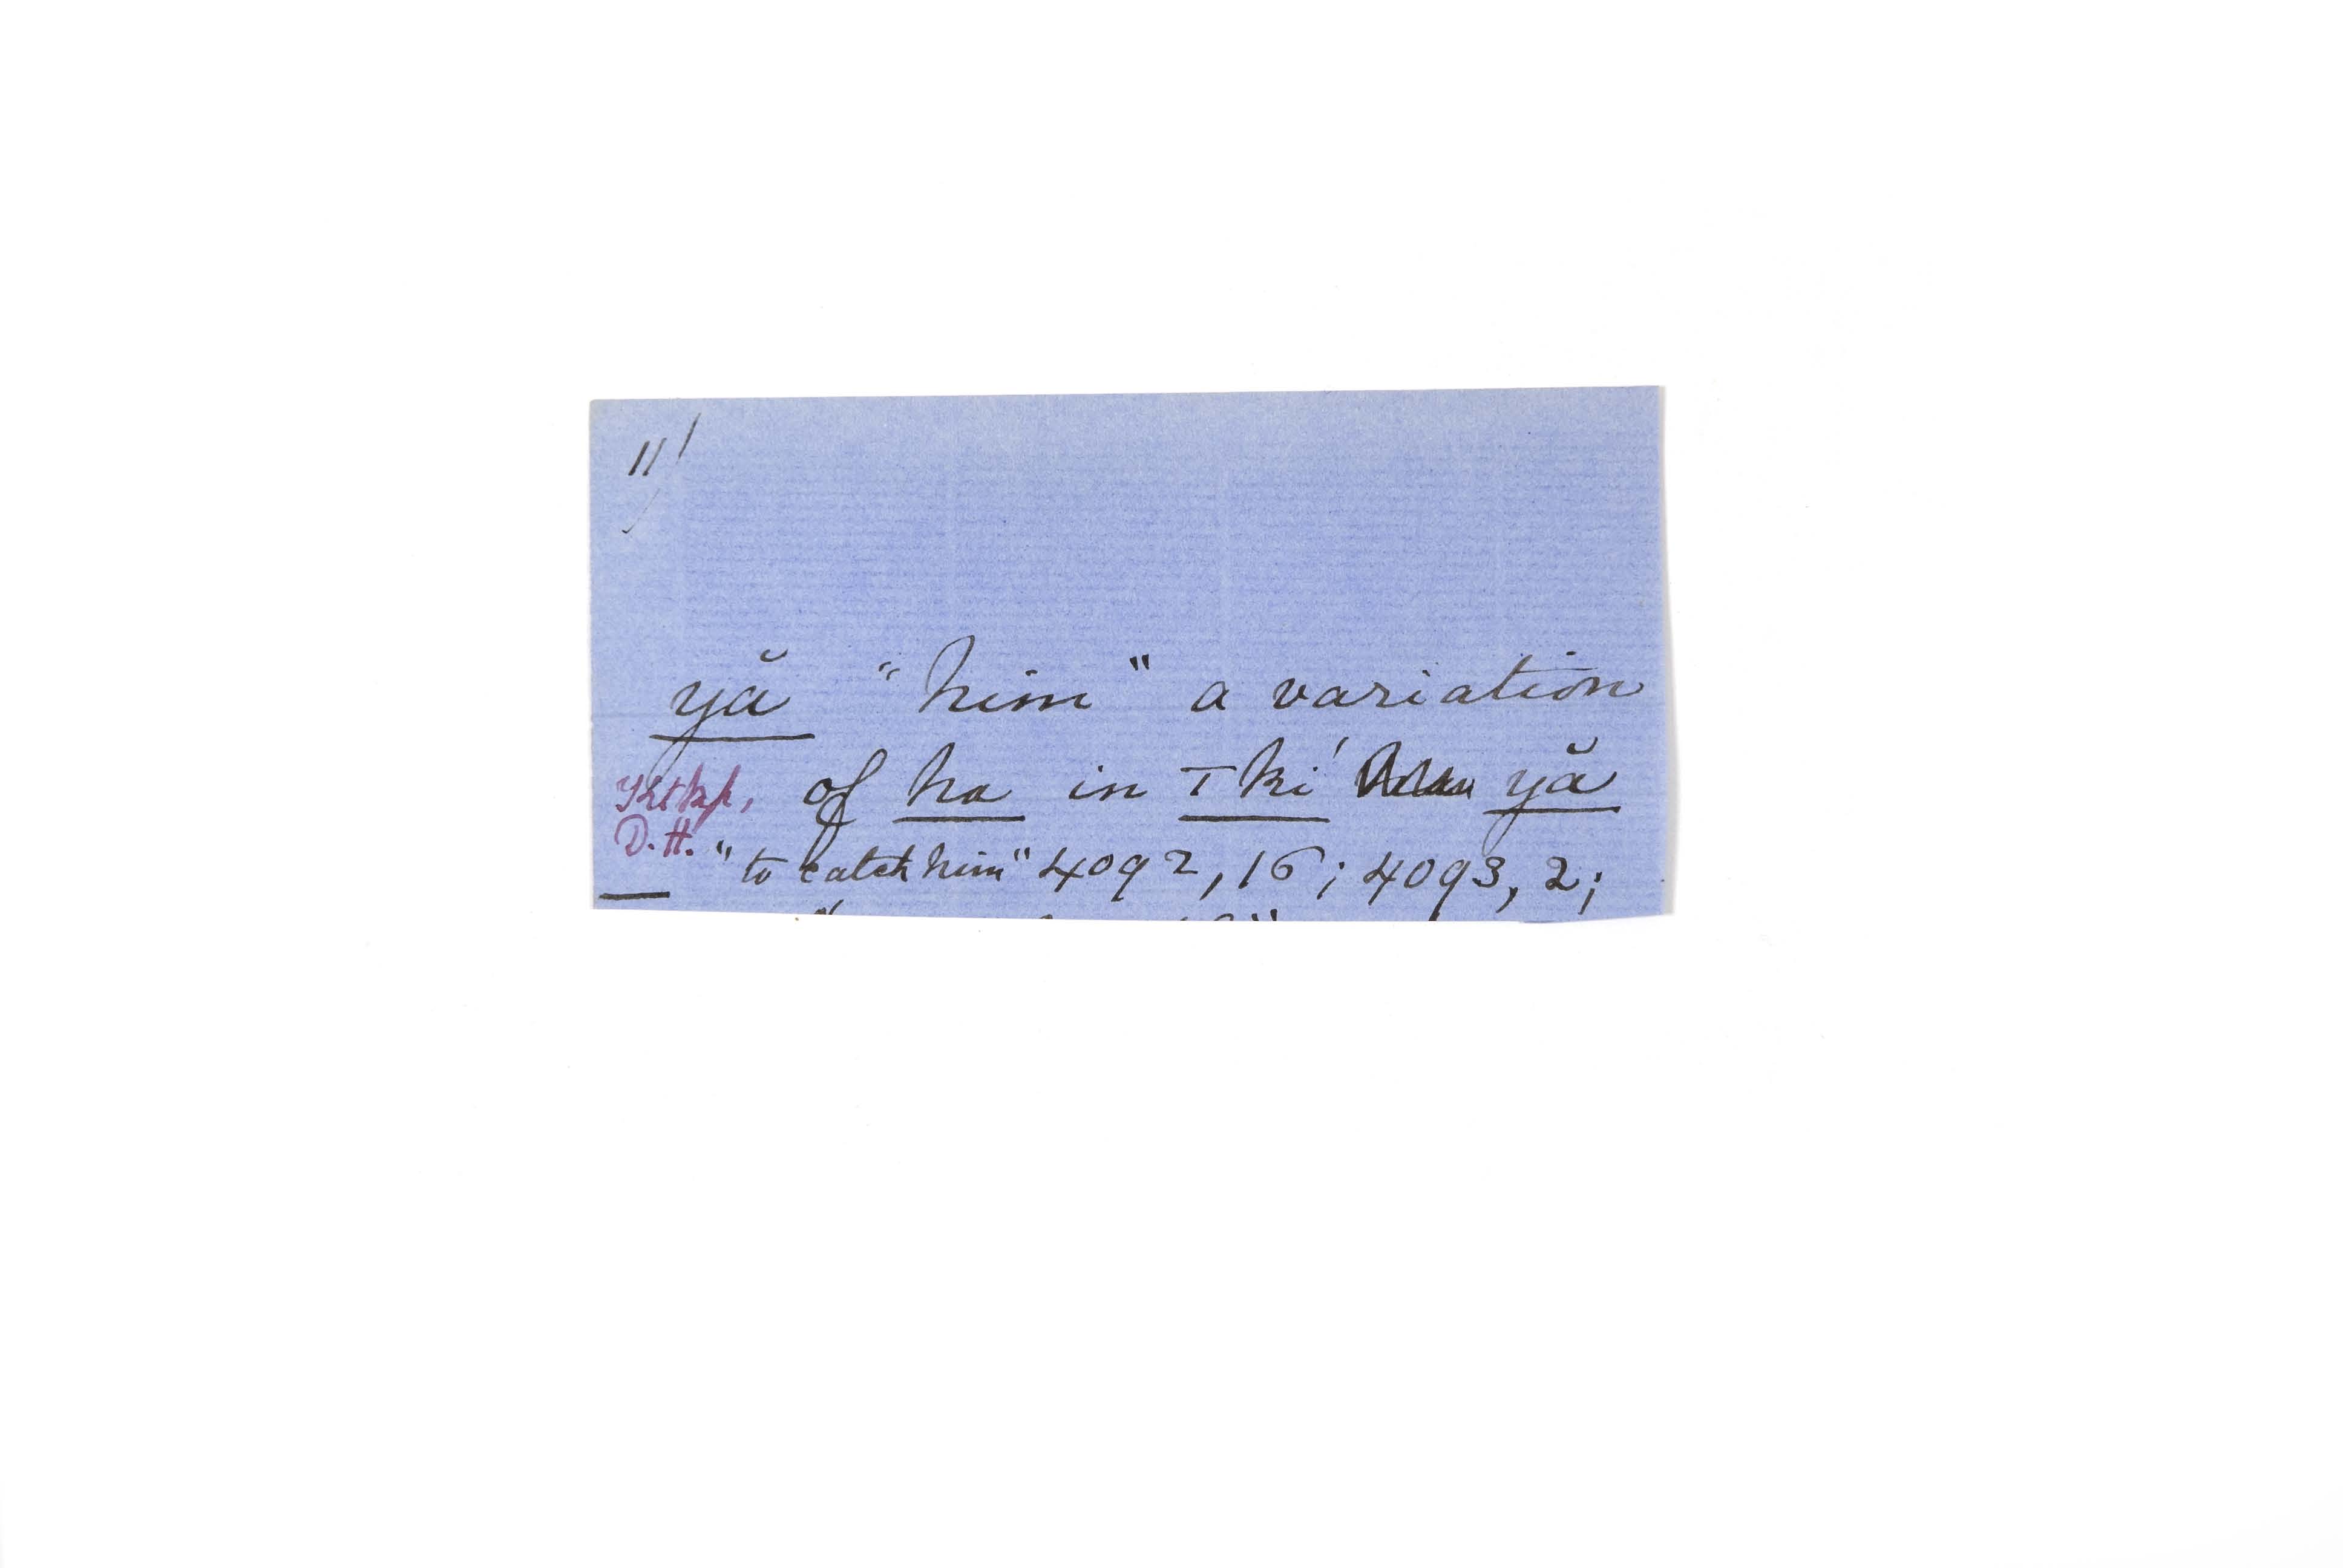 11)
yă "him" a variation
of ha in T kí yă
D. H.
"to catch him" 4092, 16; 4093, 2;